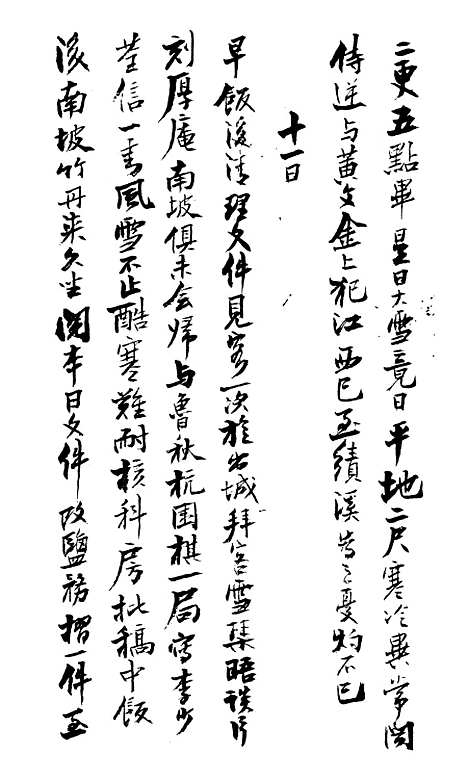 二更五點畢是日大雪竟日平地二尺寒冷異常聞
侍逆与黃文金上犯江西已至績溪為之憂灼不已
十一日
早飯後清理文件見客一次旋出城拜客雪琴晤談片
刻厚庵南坡俱未会歸与魯秋杭围棋一局寫李少
荃信一封風雪不止酷寒難耐核科房批稿中飯
後南坡竹丹来久坐閱本日文件改鹽務摺一件至